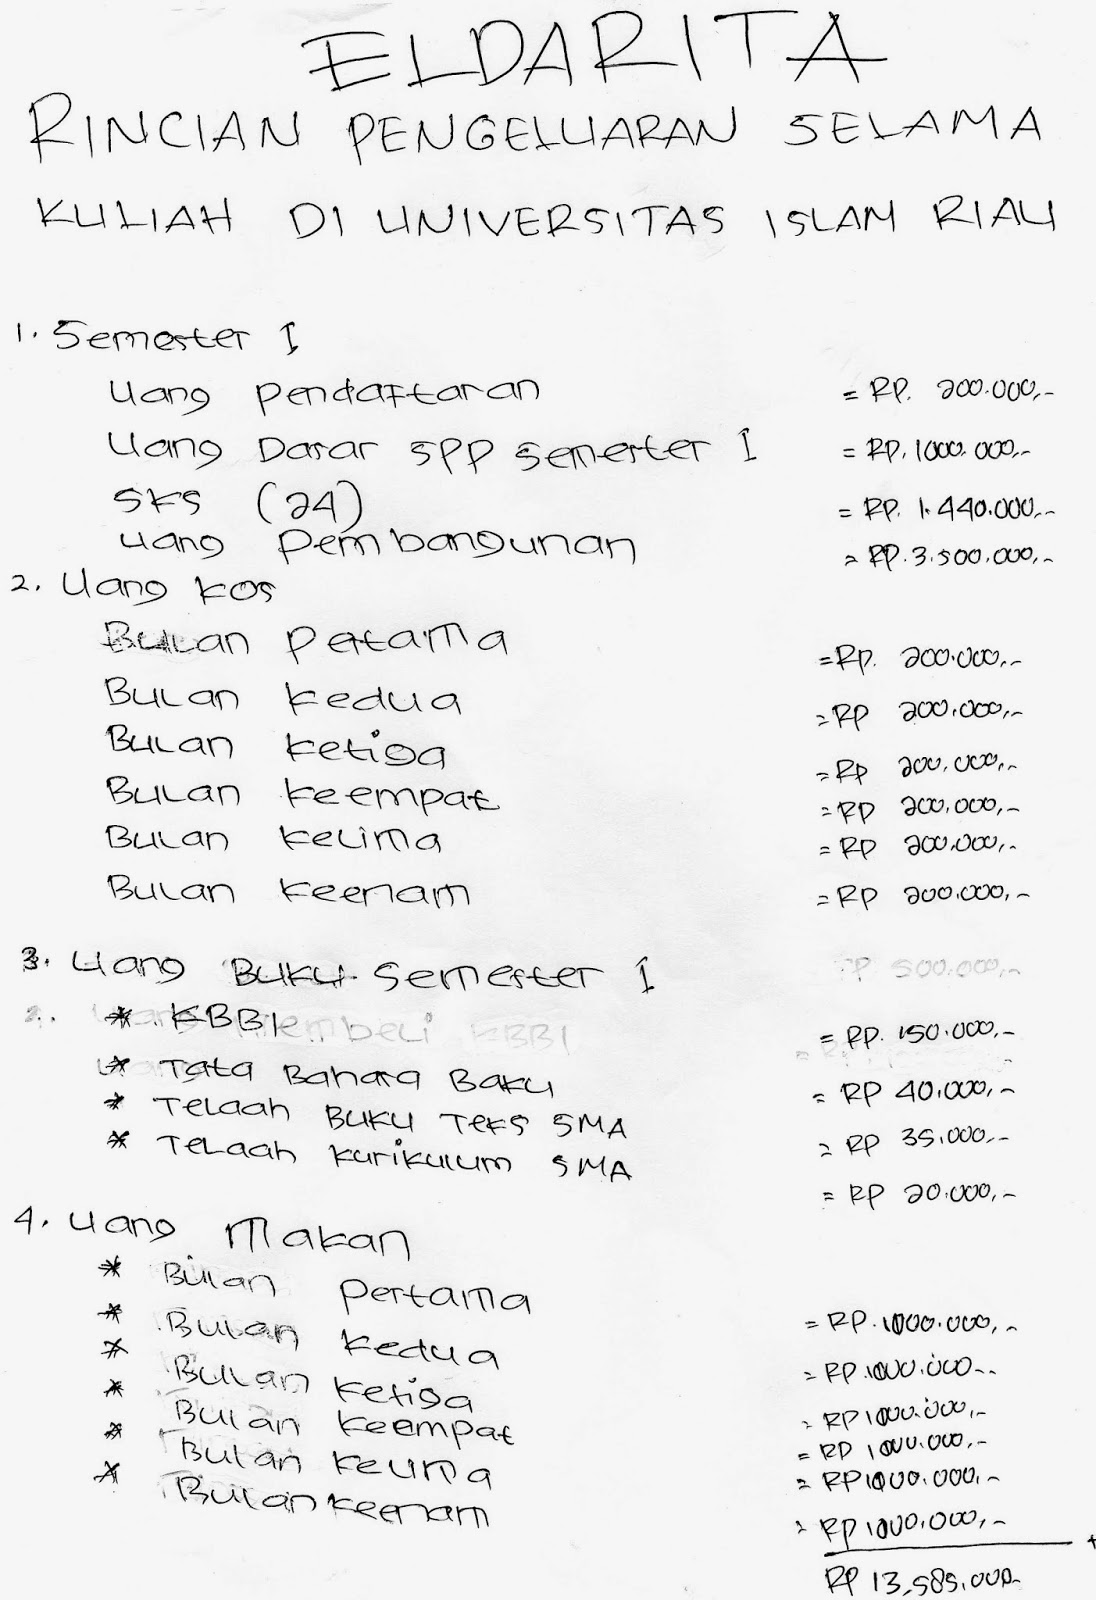 ELDARITA
RINCIAN PENGELUARAN SELAMA
KULIAH DI UNIVERSITAS ISLAM RIAU
1. Semester I
Uang Pendaftaran = RP. 200.000,-
Uang Dasar SPP Semester I = RP. 1000.000,-
SKS (24) = RP. 1.440.000,-
Uang Pembangunan = RP. 3.500.000,-
2. Uang Kos
Bulan Pertama = RP. 200.000,-
Bulan Kedua = RP 200.000,-
Bulan Ketiga = RP 200.000,-
Bulan Keempat = RP 200.000,-
Bulan Kelima = RP 200.000,-
Bulan Keenam = RP 200.000,-
3. Uang Buku Semester I RP 500.000,-
* KBBI = RP. 150.000,-
* Tata Bahasa Baku = RP 40.000,-
* Telaah Buku Teks SMA = RP 35.000,-
* Telaah Kurikulum SMA = RP 20.000,-
4. Uang Makan
* Bulan Pertama = RP. 1000.000,-
* Bulan Kedua = RP. 1000.000,-
* Bulan Ketiga = RP 1000.000,-
* Bulan Keempat = RP 1000.000,-
* Bulan Kelima = RP 1000.000,-
* Bulan Keenam = RP 1000.000,-
+
RP 13.585.000,-